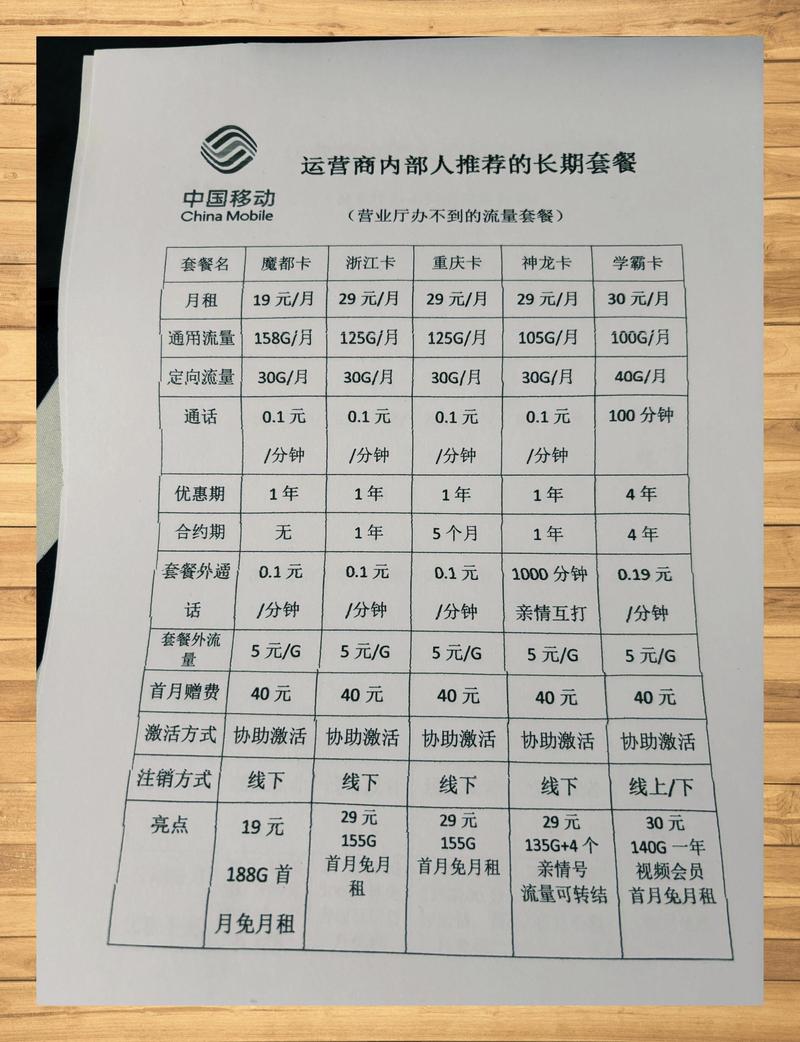 中国移动
China Mobile
运营商内部人推荐的长期套餐
（营业厅办不到的流量套餐）
套餐名 魔都卡 浙江卡 重庆卡 神龙卡 学霸卡
月租 19 元/月 29 元/月 29 元/月 29 元/月 30 元/月
通用流量 158G/月 125G/月 125G/月 105G/月 100G/月
定向流量 30G/月 30G/月 30G/月 30G/月 40G/月
通话 0.1 元 0.1 元 0.1 元 0.1 元 100 分钟
/分钟 /分钟 /分钟 /分钟
优惠期 1 年 1 年 1 年 1 年 4 年
合约期 无 1 年 5 个月 1 年 4 年
套餐外通 0.1 元 0.1 元 0.1 元 1000 分钟 0.19 元
话 /分钟 /分钟 /分钟 亲情互打 /分钟
套餐外流
量 5 元/G 5 元/G 5 元/G 5 元/G 5 元/G
首月赠费 40 元 40 元 40 元 40 元 40 元
激活方式 协助激活 协助激活 协助激活 协助激活 协助激活
注销方式 线下 线下 线下 线下 线上/下
亮点 19 元 29 元 29 元 29 元 30 元
155G 155G 135G+4 个 140G 一年
188G 首 首月免月 首月免月租 亲情号 视频会员
租 流量可转结 首月免月租
月免月租